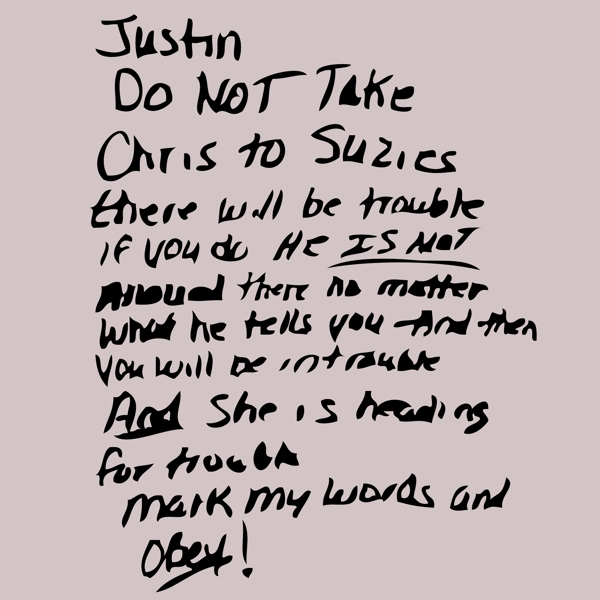 Justin
Do NOT Take
Chris to Suzies
there will be trouble
if you do HE IS NOT
Around there no matter
what he tells you And then
you will be in trouble
And She is heading
for trouble
mark my words and
Obey!